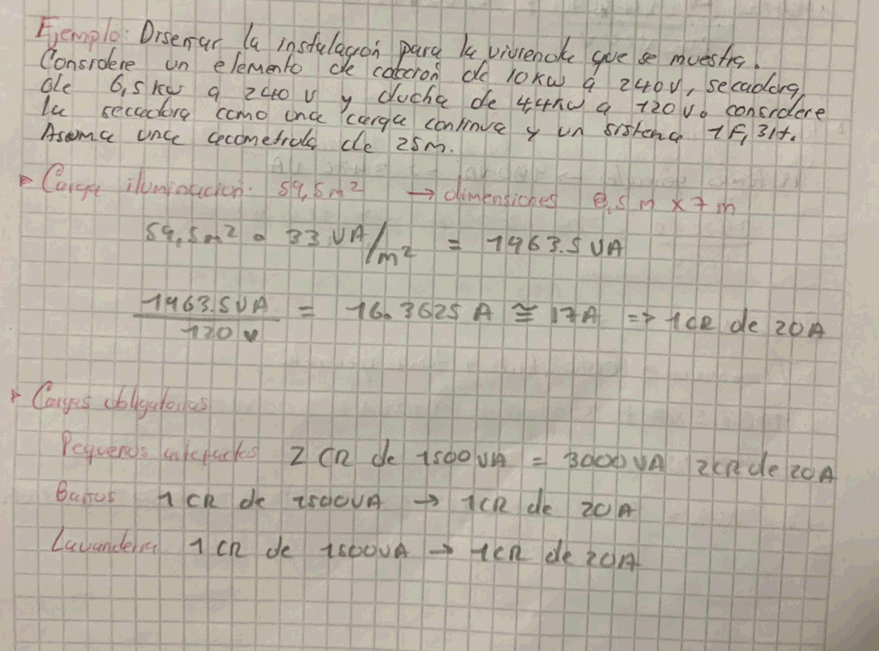 Ejemplo: Diseñar la instalación para la vivienda que se muestra.
Considere un elemento de cocción de 10 kW a 240 V, secadora
de 6,5 kW a 240 V y ducha de 4,4 kW a 120 V. considere
la secadora como una carga continua y un sistema 1F, 3H.
Asuma una acometida de 25 m.
Carga iluminación: 59,5 m² → dimensiones 8,5 m x 7 m
59,5 m² • 33 VA/m² = 1963.5 VA
1963.5 VA / 120 V = 16.3625 A ≅ 17 A => 1 CR de 20 A
Cargas obligatorias
Pequeños artefactos 2 CR de 1500 VA = 3000 VA 2 CR de 20 A
Baños 1 CR de 1500 VA → 1 CR de 20 A
Lavandería 1 CR de 1500 VA → 1 CR de 20 A